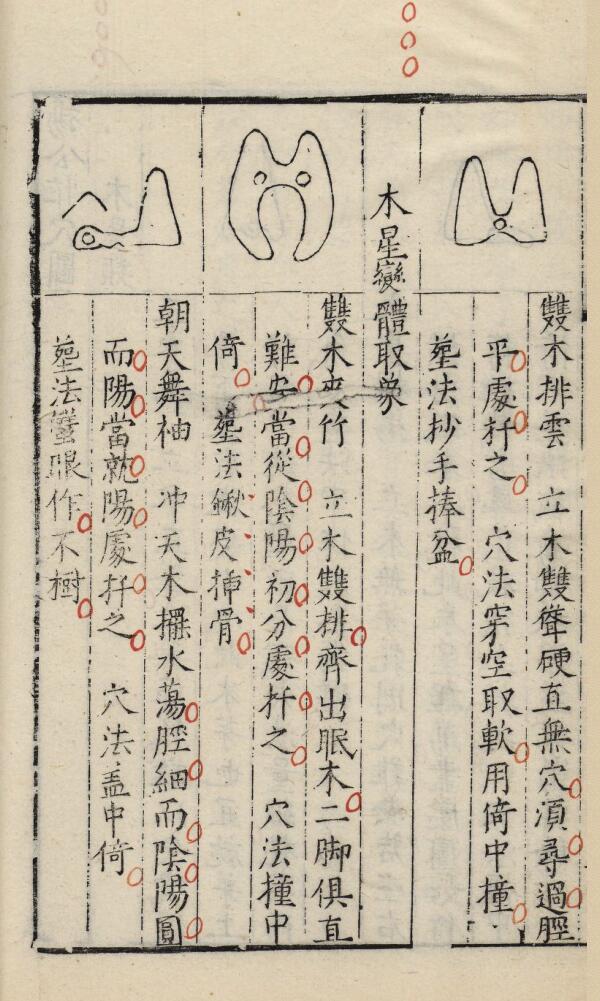 雙木排雲　立木雙聳硬直無穴湏尋過脛
平處扦之　穴法穿空取軟用倚中撞
塟法抄手捧盆
木星變體取象
雙木夾竹　立木雙排齊出眠木二脚俱直
難安當從陰陽初分處扦之　穴法撞中
倚　塟法鍬皮挿骨
朝天舞袖　冲天木擺水蕩脛細而陰陽圓
而陽當就陽處扦之　穴法盖中倚
塟法蟹眼作不𣗳